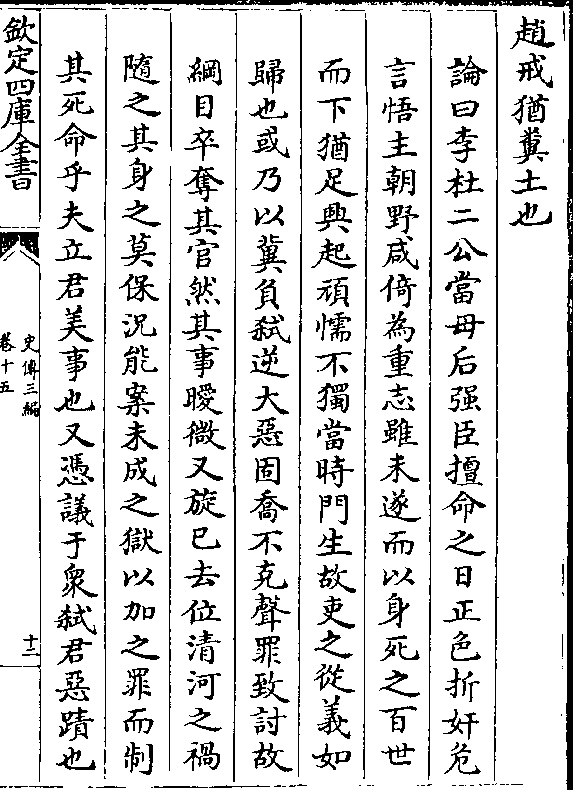 趙戒猶糞土也
論曰李杜二公當母后强臣擅命之日正色折奸危
言悟主朝野咸倚為重志雖未遂而以身死之百世
而下猶足興起頑懦不獨當時門生故吏之從義如
歸也或乃以冀負弑逆大惡固喬不克聲罪致討故
綱目卒奪其官然其事曖微又旋已去位清河之禍
隨之其身之莫保況能案未成之獄以加之罪而制
其死命乎夫立君美事也又憑議于衆弑君惡蹟也
欽定四庫全書
史傳三編
卷十五
十二